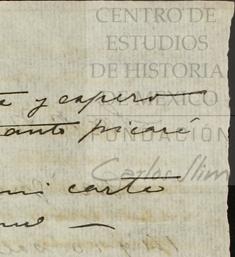 CENTRO DE
ESTUDIOS
DE HISTORIA
DE MÉXICO
FUNDACIÓN
Carlos Slim
y espero
tanto picaré
mi carta